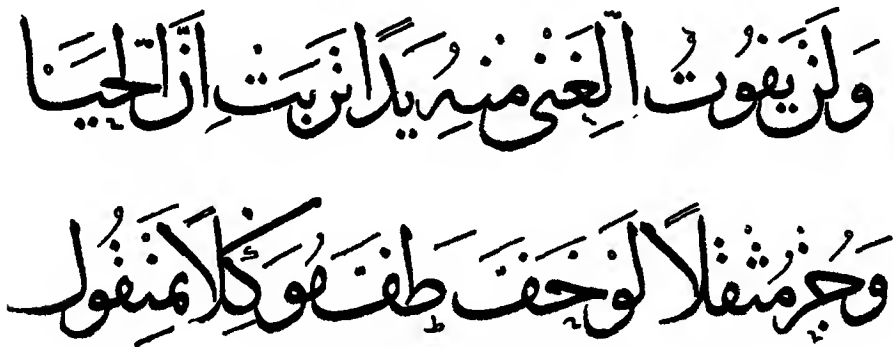 وَلَنْ يَفُوتَ الْغِنَى مِنْهُ يَدًا تَرِبَتْ اِنَّ الْحَيَا
وَجُزْ مُثْقَلاً لَوْ خَفَّ طَفَّ مُوَكَّلاً بِمَنْقُولِ